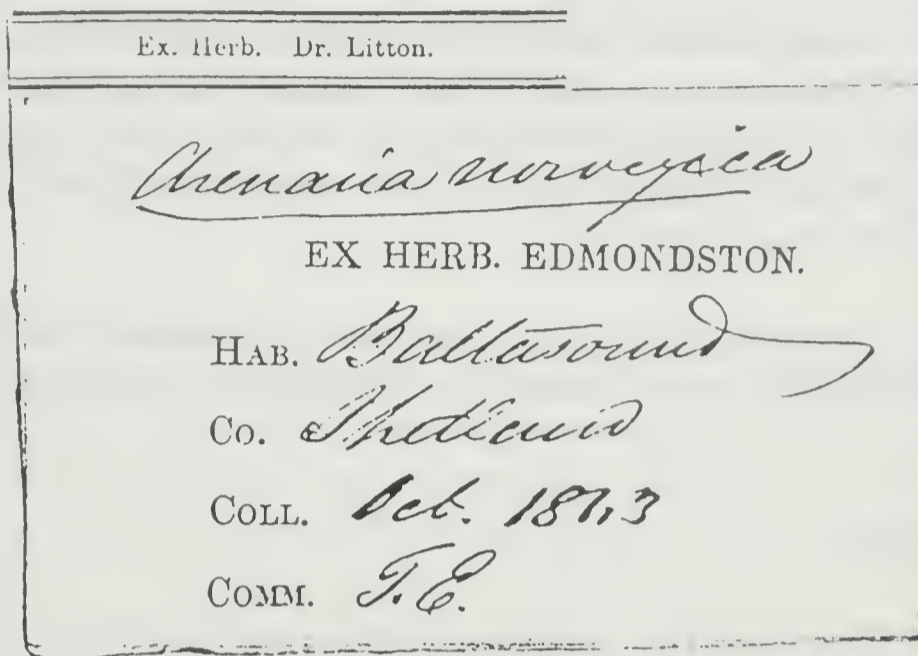 Ex. Herb. Dr. Litton.
Arenaria norvegica
EX HERB. EDMONDSTON.
HAB. Baltasound
Co. Shetland
COLL. Oct.
COMM. T.E.